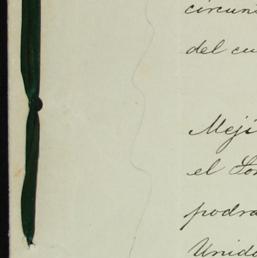 circun
del cu
Meji
el Lon
podra
Unido